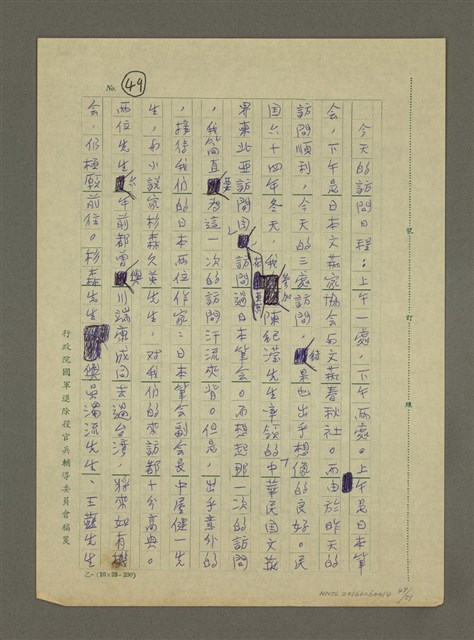 No. 49
今天的訪問日程：上午一處，下午兩處。上午是日本筆
會，下午是日本文藝家協會与文藝春秋社。而由於昨天的
訪問順利，今天的三處訪問，結果也出乎想像的良好。民
国六十四年冬天，我參加陳紀瀅先生率領的「中華民国文藝
界東北亞訪問团」訪問過日本筆会。而想起那一次的訪問
，我簡直要為這一次的訪問汗流夾背。但是，出乎意外的
，接待我們的日本兩位作家：日本筆会副会長中屋健一先
生，与小說家杉森久英先生，对我們的來訪都十分高興。
兩位先生六年前都曾與川端康成同去過台湾，將來如有機
会，仍極願前往。杉森先生與吳濁流先生、王藍先生
裝 訂 線
行政院國軍退除役官兵輔導委員會稿箋
乙-(10×25=250)